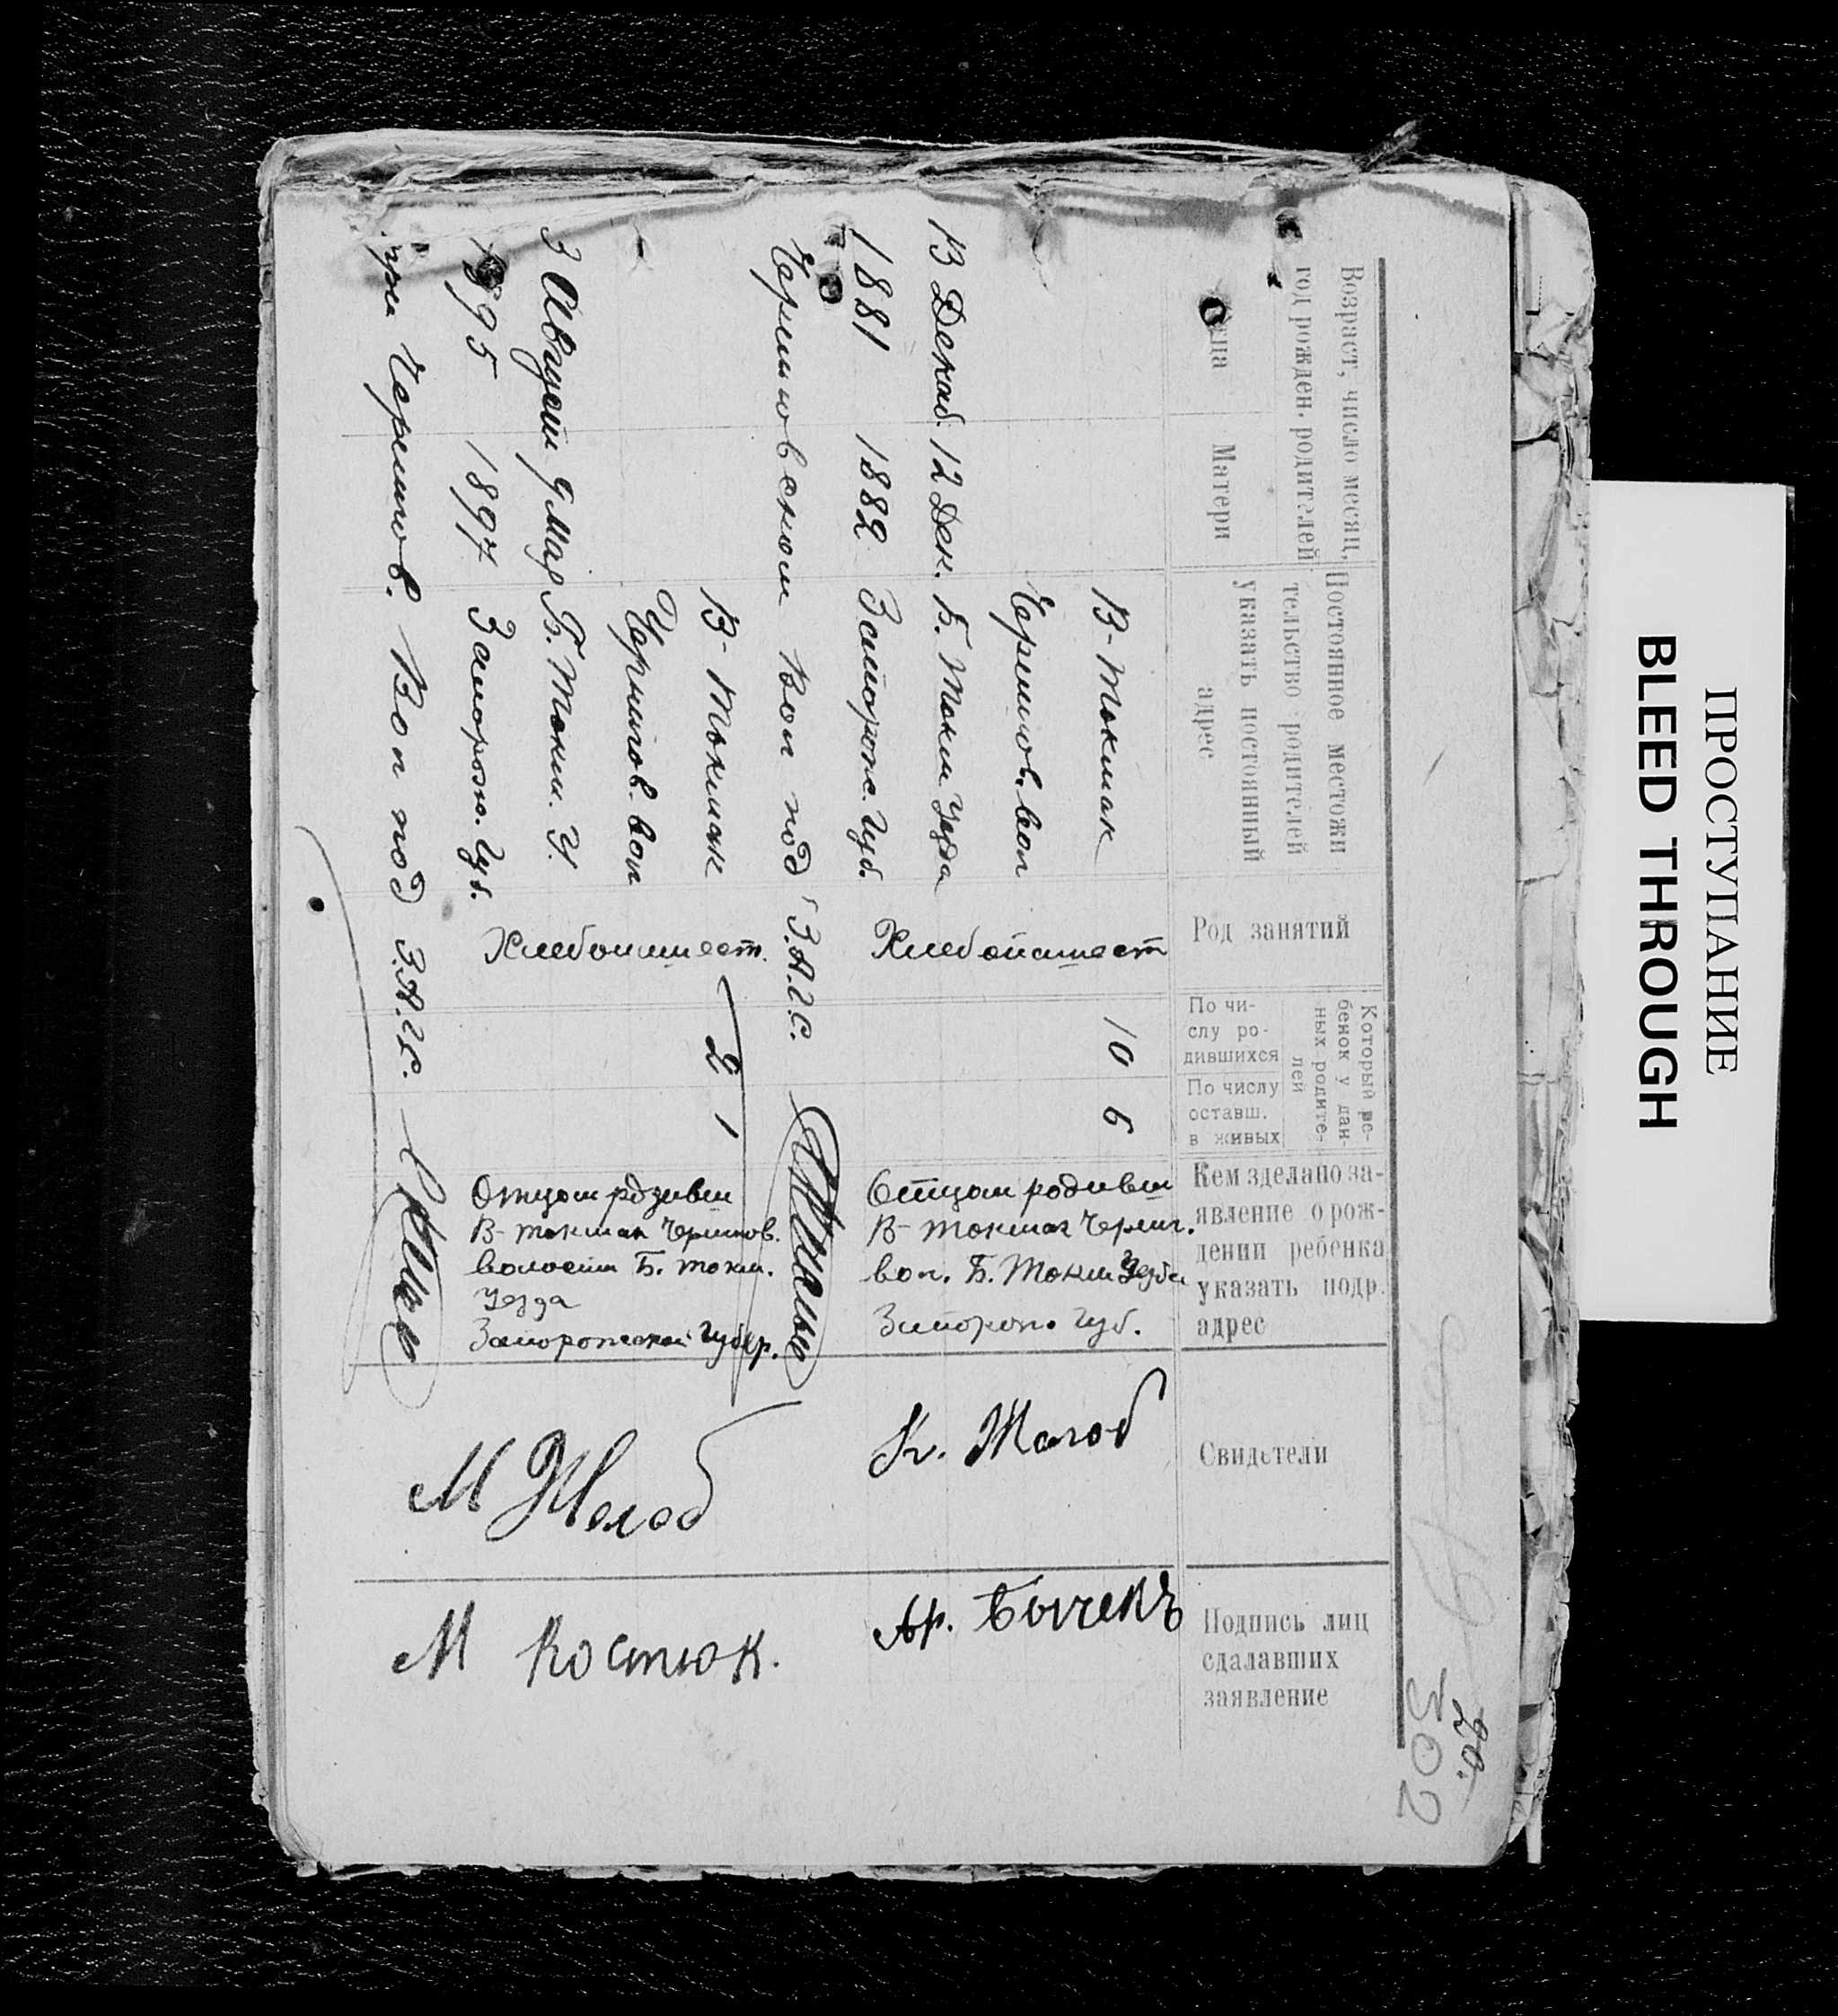 ПРОСТУПАНИЕ
BLEED THROUGH
20.
302
Возраст, число месяц,
год рожден. родителей
Отца
Матери
Постоянное местожи
тельство родителей
указать постоянный
адрес
Род занятий
Который ре-
бенок у дан-
ных родите-
лей
По чи-
слу ро-
дившихся
По числу
оставш.
в живых
Кем зделано за-
явление о рож-
дении ребенка
указать подр.
адрес
Свидетели
Подпись лиц
сдалавших
заявление
13 Декаб.
1881
12 Дек.
1882
В-Токмак
Чернигов. вол
Б. Токм. Уезда
Запорож. Губ.
Хлебопашест
10
6
Отцом родивш
В-Токмак Черниг.
вол. Б. Токм Уезда
Запорож. Губ.
К. Жолоб
Ар. Бычекъ
Черниговском Вол под З.А.Г.С.
3 Август
1895
9 Мар
1897
В-Токмак
Чернигов. вол
Б. Токм. У.
Запорож. Губ.
Хлебопашест.
2
1
Отцом родивш
В-Токмак Чернигов.
волости Б. Токм.
Уезда
Запорожской Губер.
М Жолоб
М Костюк.
при Чернигов. Вол под З.А.Г.С.